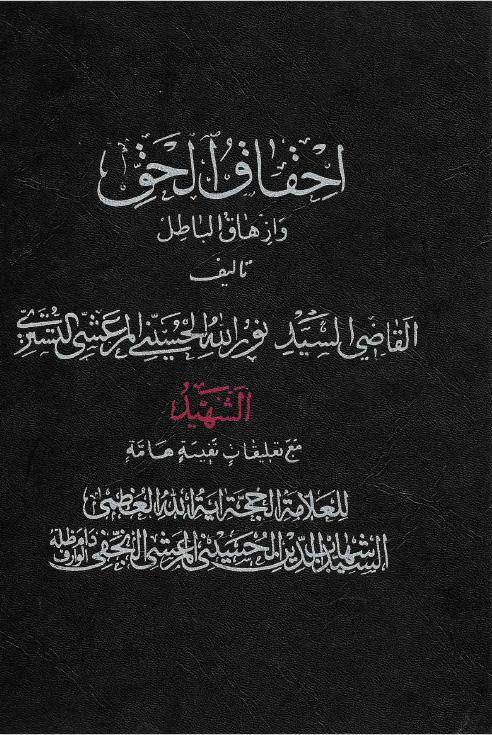 احقاق الحق
وازهاق الباطل
تاليف
القاضي السيد نور الله الحسيني المرعشي التستري
الشهيد
مع تعليقات نفيسة هامة
للعلامة الحجة اية الله العظمى
السيد شهاب الدين الحسيني المرعشي النجفي دام ظله الوارف